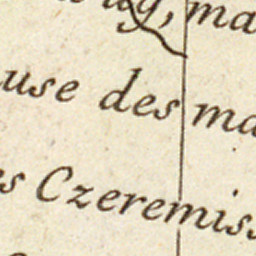 ma
use des ma
es Czeremiss